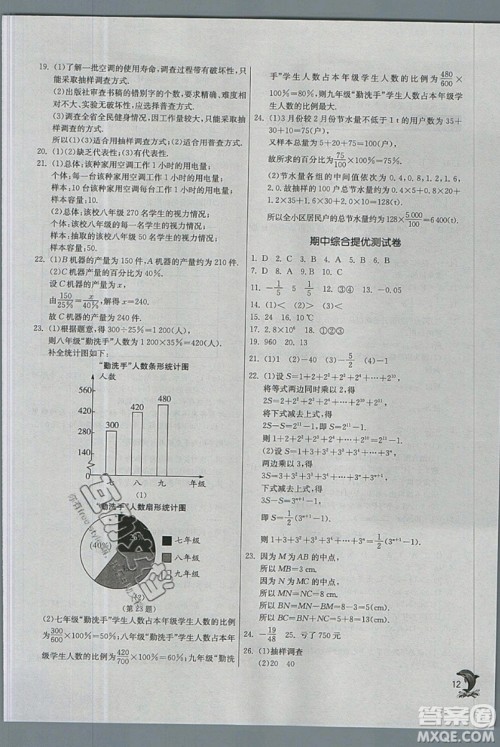 19. (1)了解一批空调的使用寿命,调查过程带有破坏性,只
能采取抽样调查方式.
(2)出版社审查书稿的错别字的个数要求准确、难度相
对不大、实验无破坏性,应选择普查方式.
(3)调查全省全民健身情况,因工作量较大,只能采取抽
样调查的方式.
所以(1)(3)适合用抽样调查,(2)适合用普查方式.
20. (1)(2)缺乏代表性;(3)有代表性.
21. (1)总体:该种家用空调工作1小时的用电量;
个体:每台该种家用空调工作1小时的用电量;
样本:10台该种家用空调每台工作1小时的用电量;
样本容量:10.
(2)总体:该校八年级270名学生的视力情况;
个体:该校八年级每名学生的视力情况;
样本:抽取的该校八年级50名学生的视力情况;
样本容量:50.
22. (1)B机器的产量为150件,A机器的产量为210件.
(2)C机器产量的百分比为40%.
设C机器的产量为x,
由150/25%=x/40%,得x=240(件),
故C机器的产量为240件.
23. (1)八年级人数是300÷25%=1200(人),
则八年级“勤洗手”人数为1200×35%=420(人).
补全统计图如下:
“勤洗手”人数条形统计图
人数
480
420
360
300
280
0
300
420
480
七 八 九 年级
(1)
“勤洗手”人数扇形统计图
(40%)
七年级
八年级
九年级
(第23题)
(2)七年级“勤洗手”学生人数占本年级学生人数的比例
为300/600×100%=50%;八年级“勤洗手”学生人数占本年
级学生人数的比例为420/700×100%=60%;九年级“勤洗
手”学生人数占本年级学生人数的比例为480/600×
100%=80%,则九年级“勤洗手”学生人数占本年级学
生人数的比例最大.
24. (1)3月份较2月份节水量不小于1t的用户数为
35+30+10=75(户);
又样本总量为20+5+35+30+10=100(户),
故所求的百分比为75/100×100%=75%.
(2)节水量各组的中间值依次为0.4,0.8,1.2,1.6,
2.0,则样本的总节水量为0.4×5+0.8×20+1.2×
35+1.6×30+2.0×10=128(t).
所以全小区居民户的总节水量为128×5000/100=6400(t).
期中综合提优测试卷
1. D 2. B 3. D 4. B 5. A 6. C 7. A
8. B 9. D 10. A 11. -1/5 5 12. ③④ 13. 4
14. (1)< (2)>
15. 24 16. 10℃
17. 2.8×10⁶ 18. ①②③
19. 960 20. -0.05
21. (1)1 (2)-40 (3)-5/2 (4)-2
22. (1)设S=1+2+2²+2³+2⁴+…+2¹⁰,
将等式两边同时乘以2,得
2S=2+2²+2³+2⁴+…+2¹¹,
将下式减去上式,得
2S-S=2¹¹-1,即S=2¹¹-1.
则1+2+2²+2³+2⁴+…+2¹⁰=2¹¹-1.
(2)设S=1+3+3²+3³+3⁴+…+3ⁿ,
两边乘以3,得
3S=3+3²+3³+3⁴+…+3ⁿ⁺¹,
下式减去上式,得
3S-S=3ⁿ⁺¹-1,即S=1/2(3ⁿ⁺¹-1).
则1+3+3²+3³+3⁴+…+3ⁿ=1/2(3ⁿ⁺¹-1).
23. 因为M为AB的中点,
所以MB=cm.
因为N为MB的中点,
所以MN=cm.
所以BN=MN=cm.
所以BC=BN-CN=cm.
24. -19/48 25. 亏了750元
26. (1)抽样调查
(2)20 40
12
答案圈
MXQE.COM